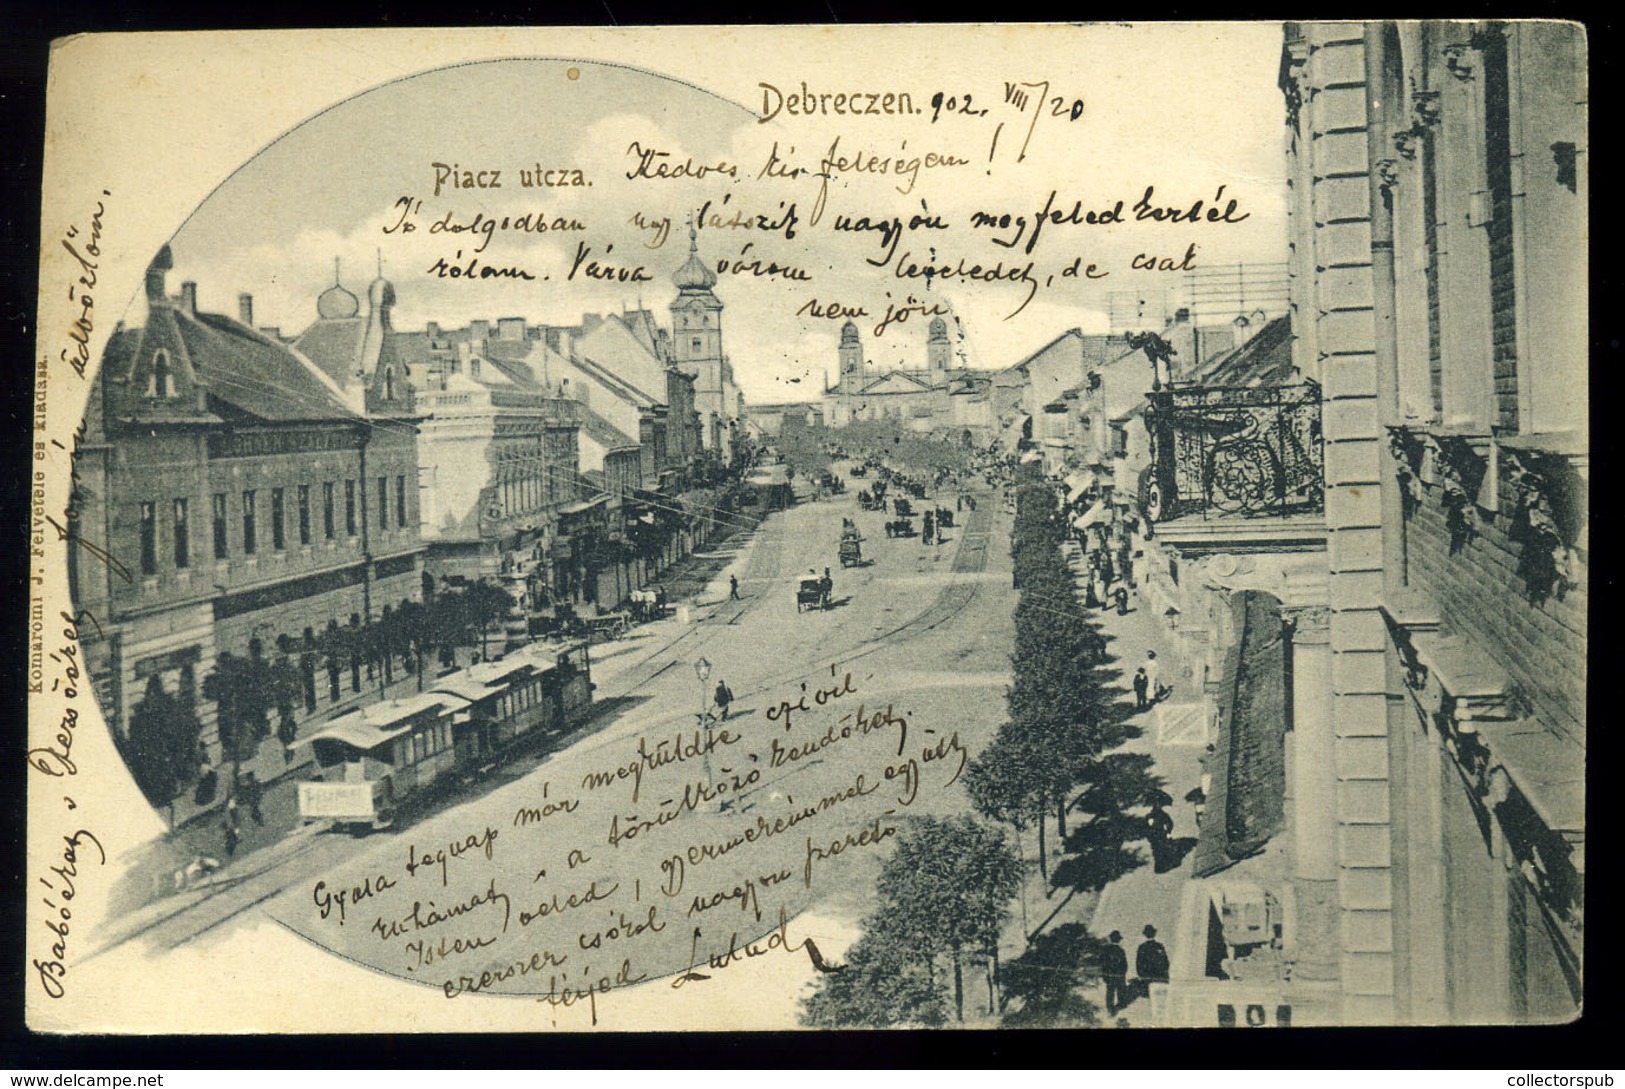 Debreczen. 902. VIII/20
Piacz utcza. Kedves kis feleségem!
Jó dolgodban ugy látszik nagyon megfeledkeztél
rólam. Várva várom leveledet, de csak
nem jön.
Gyula tegnap már megküldte czivil
ruhámat, a törülköző kendőket.
Isten veled, gyermekeimmel együtt
ezerszer csókol nagyon szerető
férjed
Babóékat s Gezsőéket
forrón üdvözlöm.
Komáromi J. Felvétele és kiadása.
collectorspub